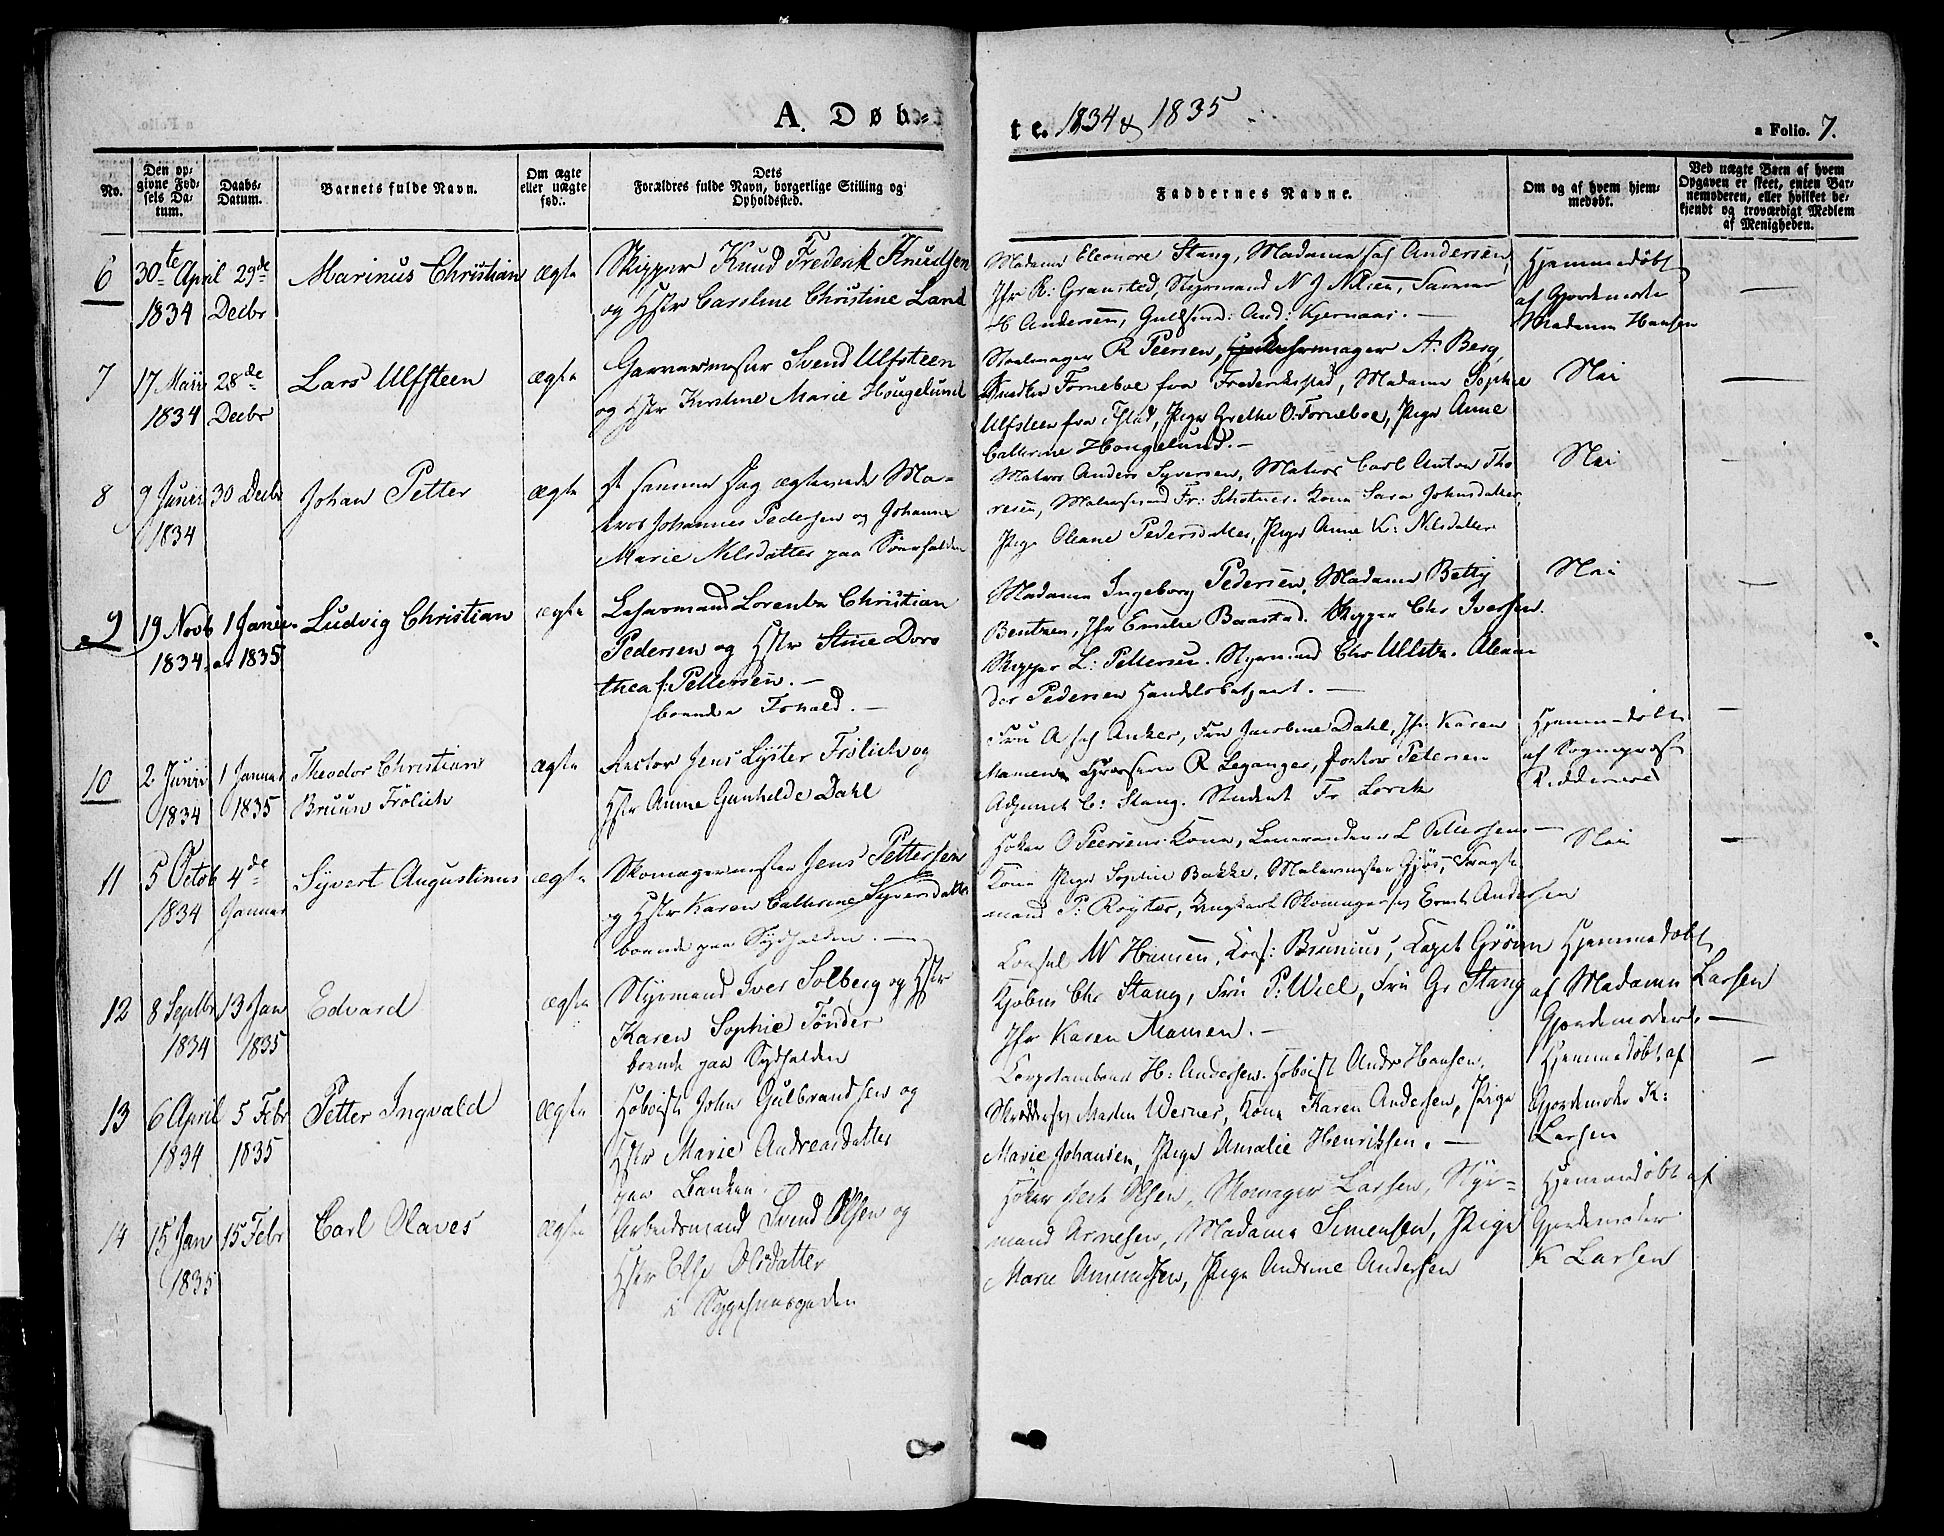 A. Døb-
te. 1834 & 1835
a Folio. 7.
No.
Den op-
givne Fød-
sels Da-
tum.
Daabs-
Datum.
Barnets fulde Navn.
Om ægte
eller uægte
fød.
Dets
Forældres fulde Navn, borgerlige Stilling og
Opholdssted.
Faddernes Navne.
Om og af hvem hjem-
medøbt.
Ved uægte Børn af hvem
Opgaven er skeet, enten Bar-
nemoderen, eller hvilket be-
kjendt og troværdigt Medlem
af Menigheden.
6
30te April
1834
29de
Decbr
Marinus Christian
ægte
Skipper Knud Frederik Knudsen
og Hstr Caroline Christine Land
Madame Eleonore Stang, Madame Andersen,
Jfr R: Gransted, Styrmand N J Nilsen,
H Andersen, And:
Hjemmedøbt
af Gjordemoder
Madame Hansen
7
17 Maii
1834
28de
Decbr
Lars Ulfsteen
ægte
Garvermester Svend Ulfsteen
og Hstr Kirstine Marie Hougelund
R Peersen, A. Berg,
Forneboe fra Frederiksstad, Madame Sophie
Ulfsteen fra Pige Grethe O. Forneboe, Pige Anne
Cathrine Hougelund.
Nei
8
9 Junii
1834
30 Decbr
Johan Petter
ægte
samme Dag ægteviede Ma-
tros Johannes Pedersen og Johanne
Marie Nilsdatter paa Sønnfalden
Matros Anders Syversen, Matros Carl Anton Tho
resen, Malersvend Fr: Kone Sara Johnsdatter,
Pige Oleane Pedersdatter, Pige Anne K: Nilsdatter
Nei
9
19 Novb
1834
1 Janu
ar 1835
Ludvig Christian
ægte
Lorentz Christian
Pedersen og Hstr Stine Doro
thea f: Pettersen.
boende
Madame Ingeborg Pedersen, Madame Betty
Bentzen, Jfr Emilie Baastad. Skipper Chr Iversen.
Skipper L: Pettersen. Styrmand Chr Alexan
der Pedersen Handelsbetjent.
Nei
10
2 Junii
1834
1 Januar
1835
Theodor Christian
Bruun Frölich
ægte
Rector Jens Lyster Frölich og
Hstr Anne Gunhilde Dahl
Fru A Anker, Fru Jacobine Dahl, Jfr Karen
Mamen R Leganger, Doctor Petersen
Adjunct C: Stang. Student Fr Lorck
Hjemmedøbt
af Sogneprest
Riddervold
11
5 Octob
1834
4de
Januar
Syvert Augustinus
ægte
Skomagermester Jens Pettersen
og Hstr Karen Cathrine Syversdatter
boende paa Sydhalden.
Høker O Peersens Kone, L Pettersens
Kone Pige Sophie Bakke, Malermester Gjøs, Fragt
mand P: Røyter, Ungkarl Skomagersv Ernst Andersen
Nei
12
8 Septbr
1834
13 Jan
1835
Edvard
ægte
Styrmand Iver Solberg og Hstr
Karen Sophie Tønder
boende paa Sydhalden
Consul W Hansen, Cons: Brunius, Capt Grønn
Kjøbm Chr Stang, Fru P: Wiel, Fru G: Stang
Jfr Karen Mamen.
Hjemmedøbt
af Madame Larsen
Gjordemoder.
13
6 April
1834
5 Febr
1835
Petter Ingvald
ægte
Hoboist John Gulbrandsen og
Hstr Marie Andreasdatter
paa Banken.
Corpstambour H: Andersen. Hoboist Andr Hansen,
Skreddersv Martin Werner, Kone Karen Andersen, Pige
Marie Johansen, Pige Amalie Henriksen.
Hjemmedøbt af
Gjordemoder K:
Larsen
14
15 Jan
1835
15 Febr
Carl Olaves
ægte
Arbeidsmand Svend Olsen og
Hstr Else Olsdatter
i
Høker Olsen, Skomager Larsen, Styr-
mand Arnesen, Madame Simensen, Pige
Marie Amundsen, Pige Andrine Andersen
Hjemmedøbt af
Gjordemoder
K Larsen